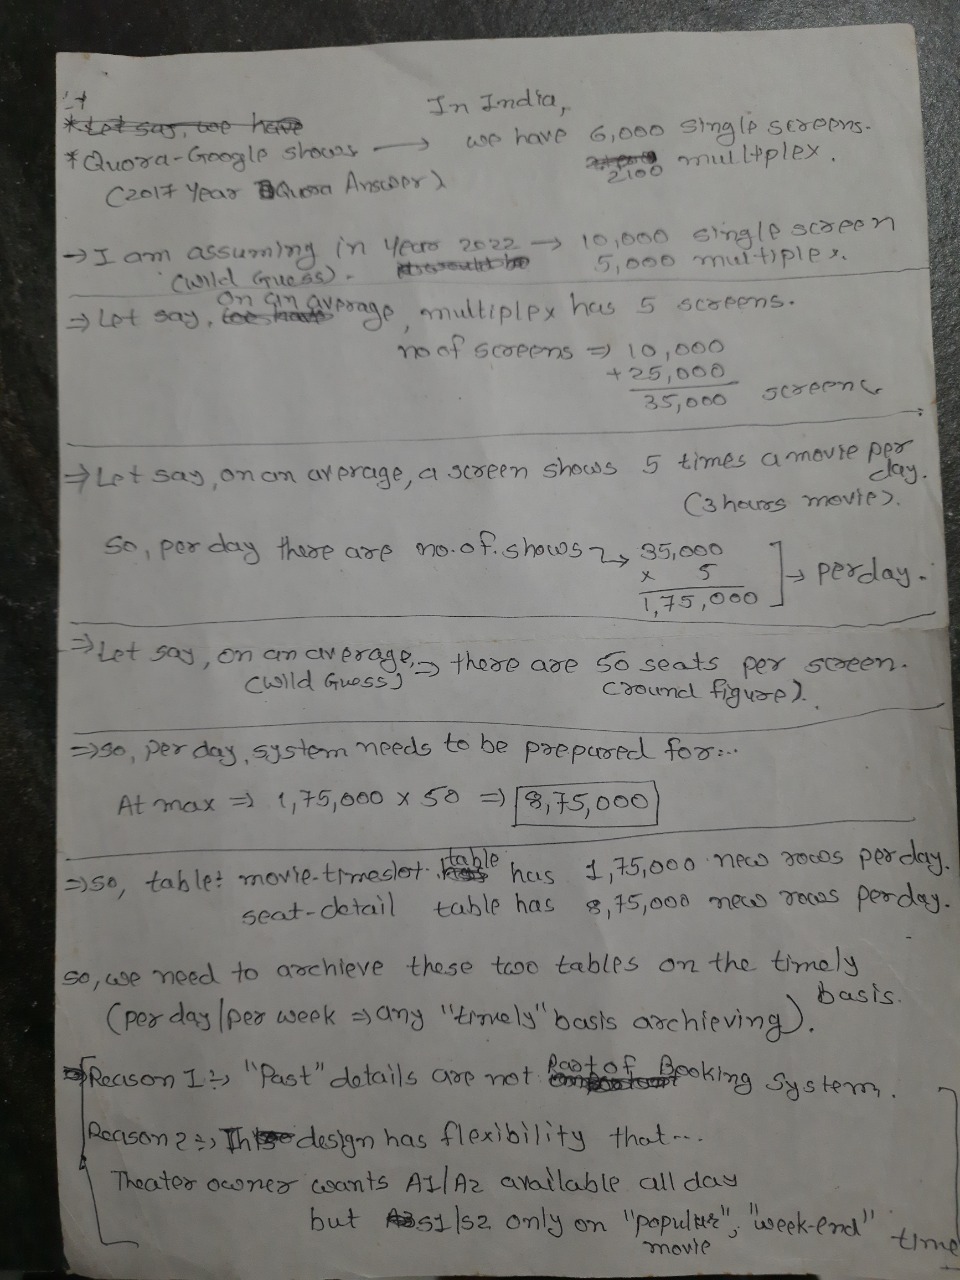 * Let say, we have
In India,
* Quora-Google shows → we have 6,000 single screens.
2100 multiplex.
(2017 Year Quora Answer)
→ I am assuming in year 2022 → 10,000 single screen
(Wild Guess). 5,000 multiplex.
⇒ Let say, on an average, multiplex has 5 screens.
no of screens ⇒ 10,000
+ 25,000
35,000 screens
⇒ Let say, on an average, a screen shows 5 times a movie per day.
(3 hours movie).
So, per day there are no. of. shows → 35,000
x 5
1,75,000
→ per day.
⇒ Let say, on an average, ⇒ there are 50 seats per screen.
(Wild Guess) (round figure).
⇒ so, per day, system needs to be prepared for:..
At max ⇒ 1,75,000 x 50 ⇒ 8,75,000
⇒ so, table: movie-timeslot. table has 1,75,000 new rows per day.
seat-detail table has 8,75,000 new rows per day.
so, we need to archieve these two tables on the timely basis.
(per day/per week ⇒ any "timely" basis archieving).
Reason 1 :→ "Past" details are not Part of Booking System.
Reason 2 :→ This design has flexibility that...
Theater owner wants A1/A2 available all day
but S1/S2 only on "popular", "week-end" time
movie